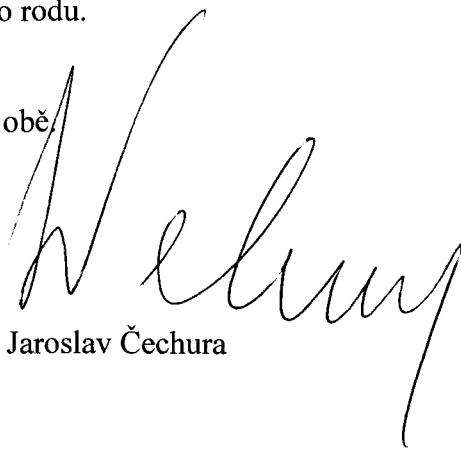 o rodu.
obě.
Jaroslav Čechura